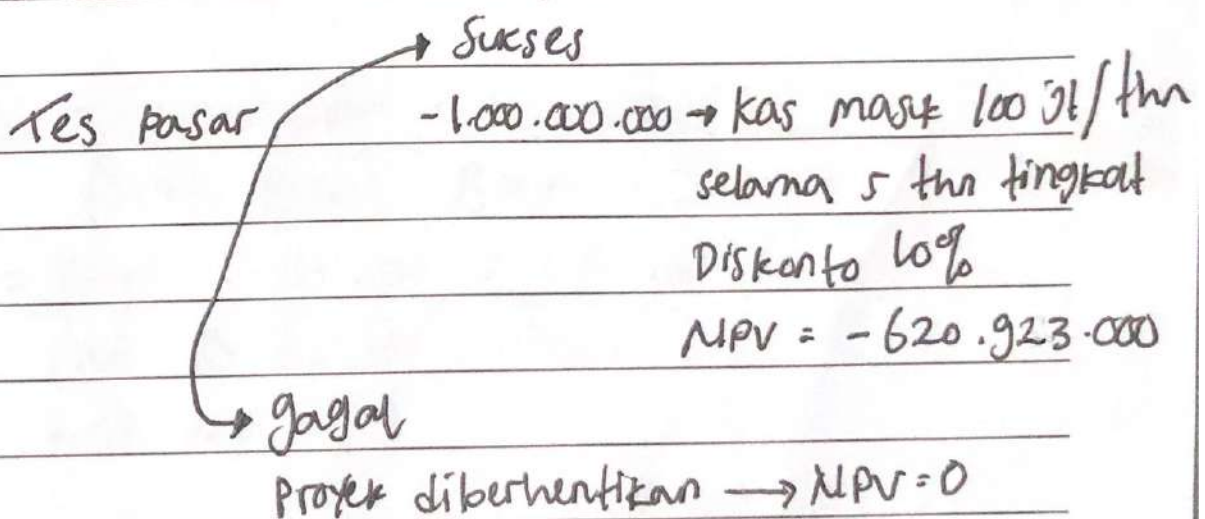 Sukses
Tes pasar -1.000.000.000 → Kas masuk 100 jt/thn
selama 5 thn tingkat
Diskonto 10%
NPV = -620.923.000
gagal
Proyek diberhentikan → NPV = 0